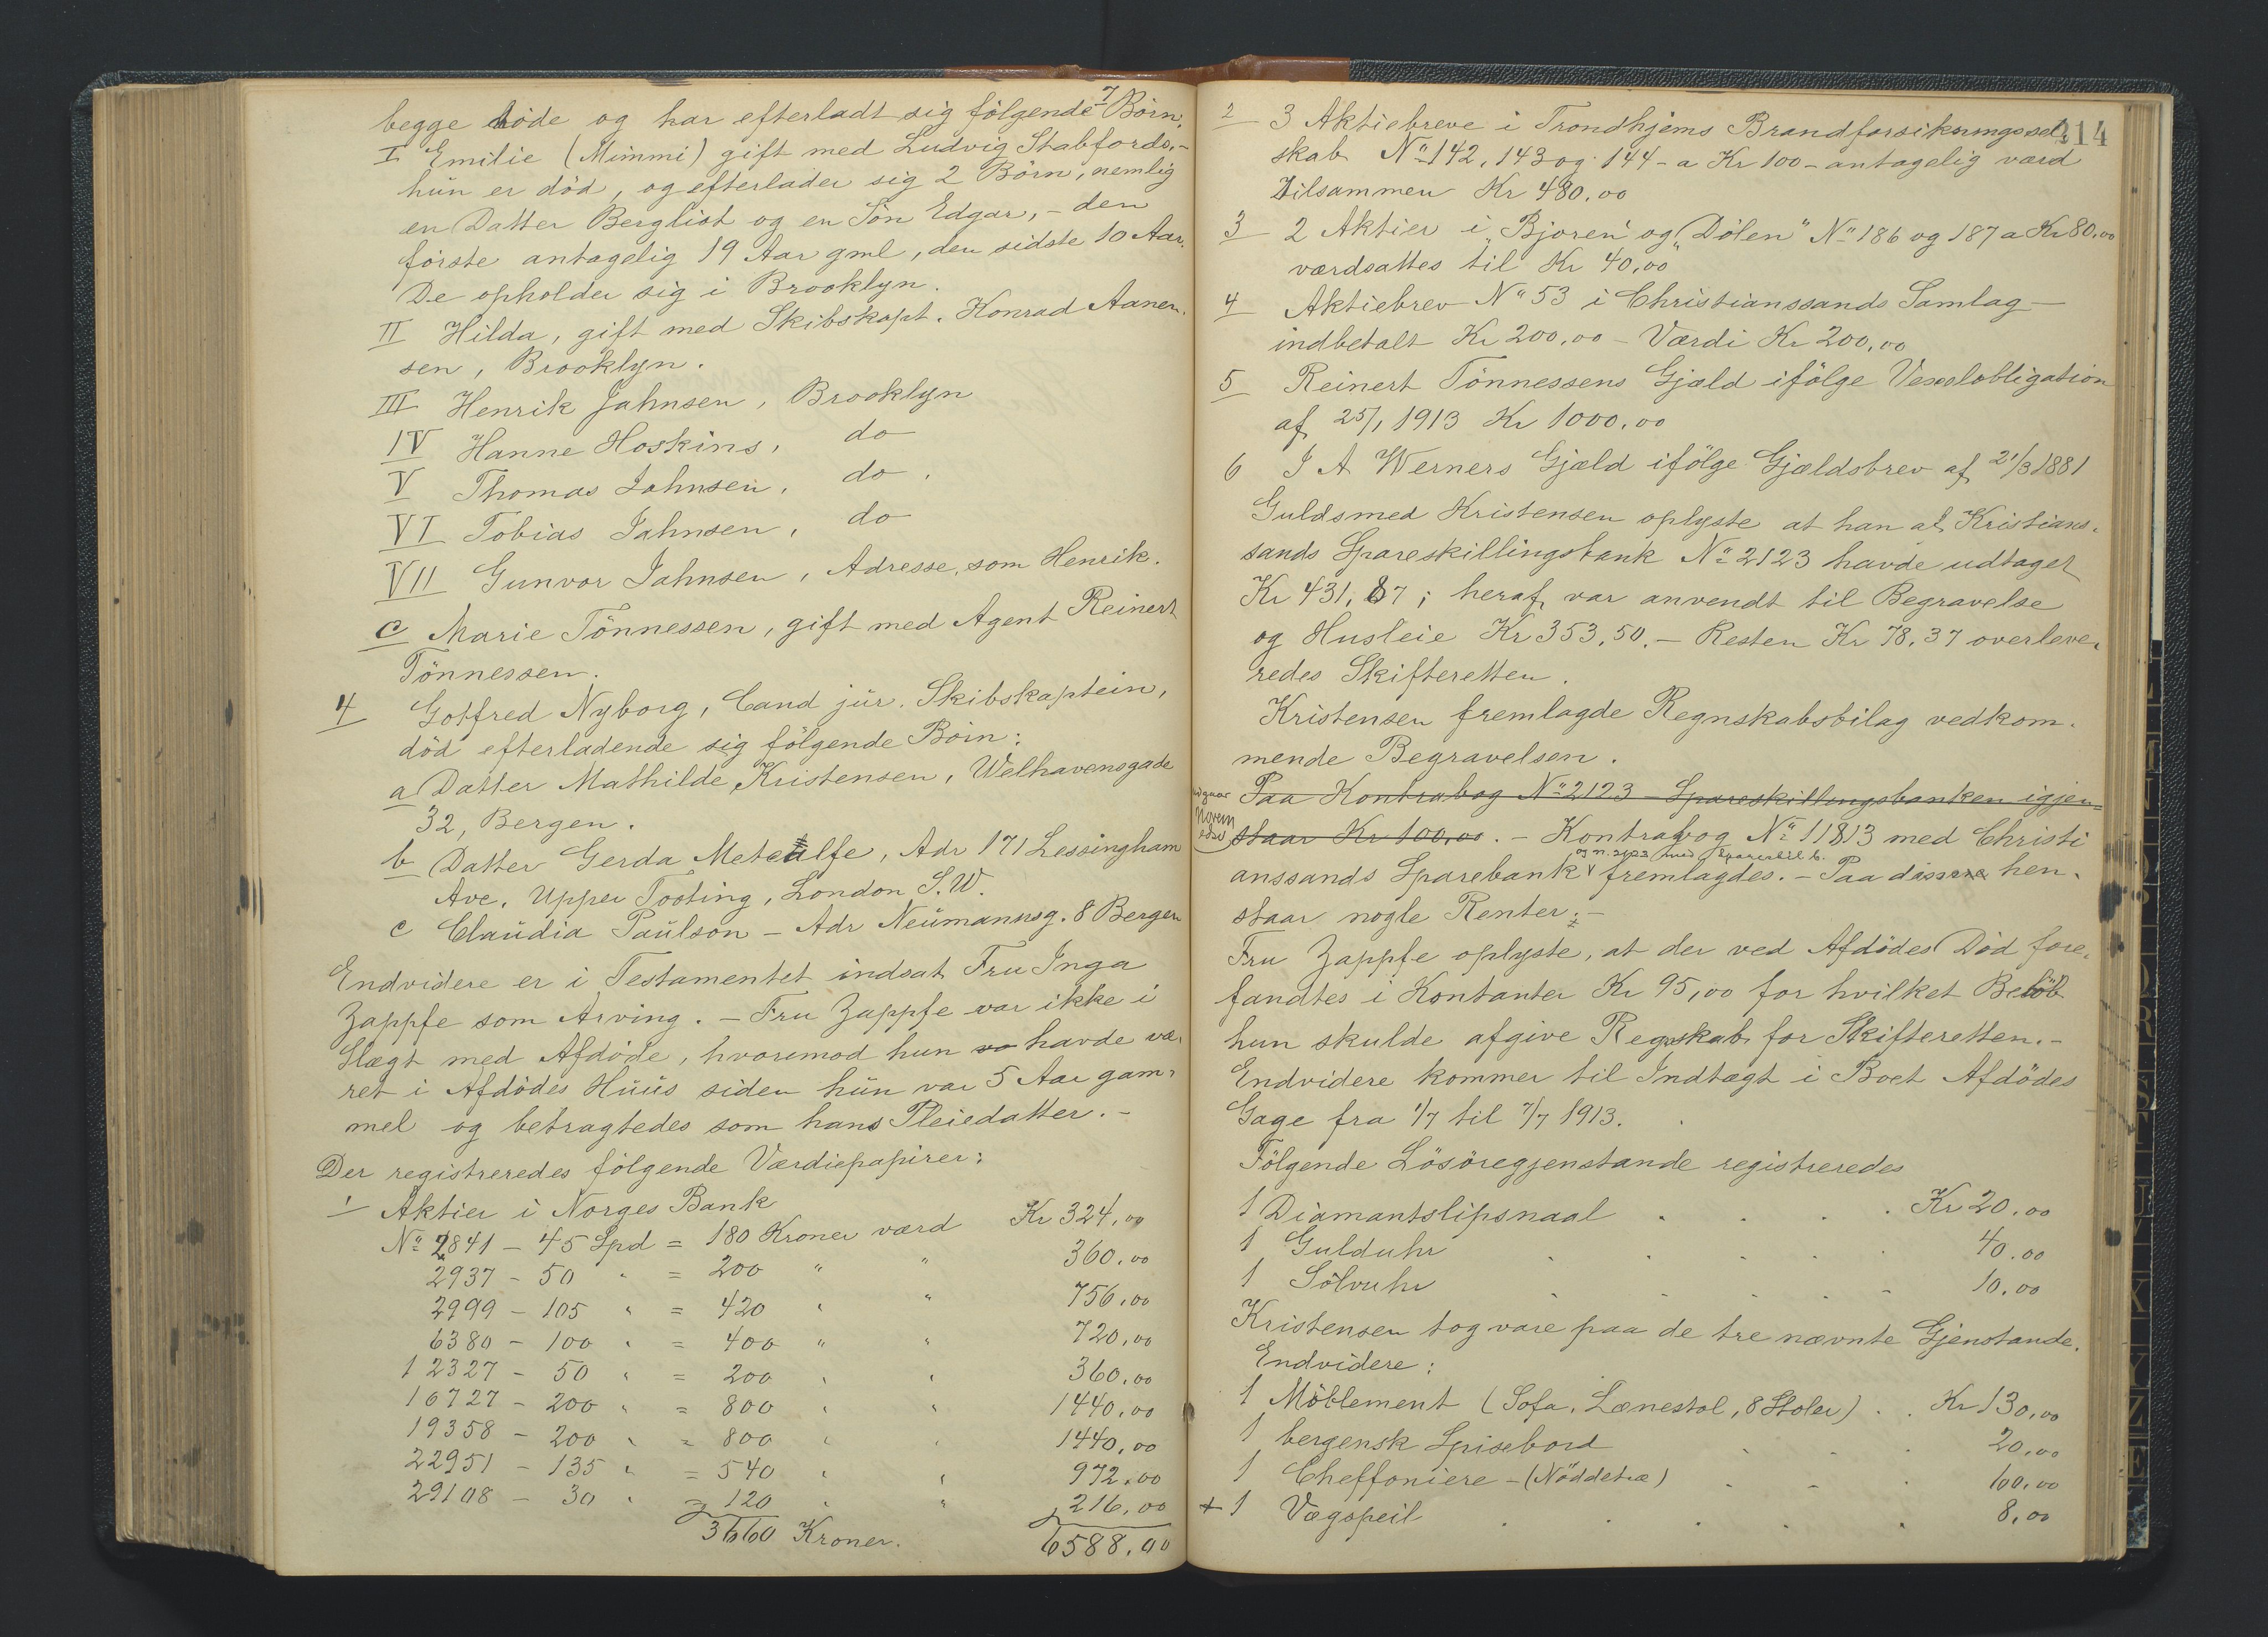 begge döde og har efterladt sig fölgende 7 Börn:
I Emilie (Mimmi) gift med Ludvig Stabfords,-
hün er död, og efterlader sig 2 Börn, nemlig
en Datter Bergliot og en Sön Edgar, - den
förste antagelig 19 Aar gml, den sidste 10 Aar.
De opholder sig i Brooklyn.
II Hilda, gift med Skibskapt. Konrad Aanen-
sen, Brooklyn.
III Henrik Jahnsen, Brooklyn
IV Hanne Hoskins, do
V Thomas Jahnsen, do.
VI Tobias Jahnsen, do
VII Gunvor Jahnsen, Adresse, som Henrik.
c Marie Tönnessen, gift med Agent Reinert
Tönnessen.
4 Gotfred Nyborg, Cand jür. Skibskaptein,
död efterladende sig fölgende Börn:
a Datter Mathilde Kristensen, Welhavensgade
32, Bergen.
b Datter Gerda Metcalfe, Adr 171 Lessingham
Ave, Upper Tooting, London S.W.
c Claüdia Paülson - Adr Neümannsg. 8 Bergen
Endvidere er i Testamentet indsat Fru Inga
Zappfe som Arving. - Fru Zappfe var ikke i
Slægt med Afdöde, hvoremod hun va havde væ-
ret i Afdödes Hüüs siden hün var 5 Aar gam-
mel og betragtedes som hans Pleiedatter. -
Der registreredes fölgende Værdiepapirer:
1 Aktier i Norges Bank
No 2841 - 45 Spd = 180 Kroner værd Kr 324,00
2937 - 50 " = 200 " " 360.00
2999 - 105 " = 420 " " 756.00
6380 - 100 " = 400 " " 720,00
12327 - 50 " = 200 " " 360.00
16727 - 200 " = 800 " " 1440,00
19358 - 200 " = 800 " " 1440,00
22951 - 135 " = 540 " " 972.00
29108 - 30 " = 120 " " 216,00
3660 Kroner. 6588.00
214
2 3 Aktiebreve i Trondhjems Brandforsikringssel-
skab No 142, 143 og 144 - a Kr 100 - antagelig værd
Tilsammen Kr 480,00
3 2 Aktier i "Bjoren" og "Dölen" No 186 og 187 a Kr 80,00
værdsattes til Kr 40,00
4 Aktiebrev No 53 i Christianssands Samlag -
indbetalt Kr 200,00 - Værdi Kr 200,00
5 Reinert Tönnessens Gjæld ifölge Vexelobligation
af 25/1 1913 Kr 1000,00
6 I A Werners Gjæld ifölge Gjældsbrev af 21/3 1881
Guldsmed Kristensen oplyste at han af Kristians-
sands Spareskillingsbank No 2123 havde udtaget
Kr 431,87; heraf var anvendt til Begravelse
og Husleie Kr 353,50. - Resten Kr 78,37 overleve-
redes Skifteretten.
Kristensen fremlagde Regnskabsbilag vedkom-
mende Begravelsen.
Paa Kontrabog No 2123 - Spareskillingsbanken igjen-
staar Kr 100,00. - Kontrabog No 11813 med Christi
og n. 2123 med Spareskil b.
anssands Sparebank fremlagdes. - Paa disse hen-
staar nogle Renter. -
Fru Zappfe oplyste, at der ved Afdödes Död fore-
fandtes i Kontanter Kr 95,00 for hvilket Belöb
hun skulde afgive Regnskab for Skifteretten. -
Endvidere kommer til Indtægt i Boet Afdödes
Gage fra 1/7 til 7/7 1913.
Fölgende Lösöregjenstande registreredes
1 Diamantslipsnaal . . . . Kr 20.00
1 Gulduhr . . . . . 40.00
1 Sölvuhr . . . . . 10.00
Kristensen tog vare paa de tre nævnte Gjenstande.
Endvidere:
1 Möblement (Sofa, Lænestol, 8 Stoler) . . Kr 130,00
1 bergensk Spisebord . . . 20,00
1 Cheffoniere - (Nöddetræ) . . . 100,00
+ 1 Vægspeil . . . . . 8,00